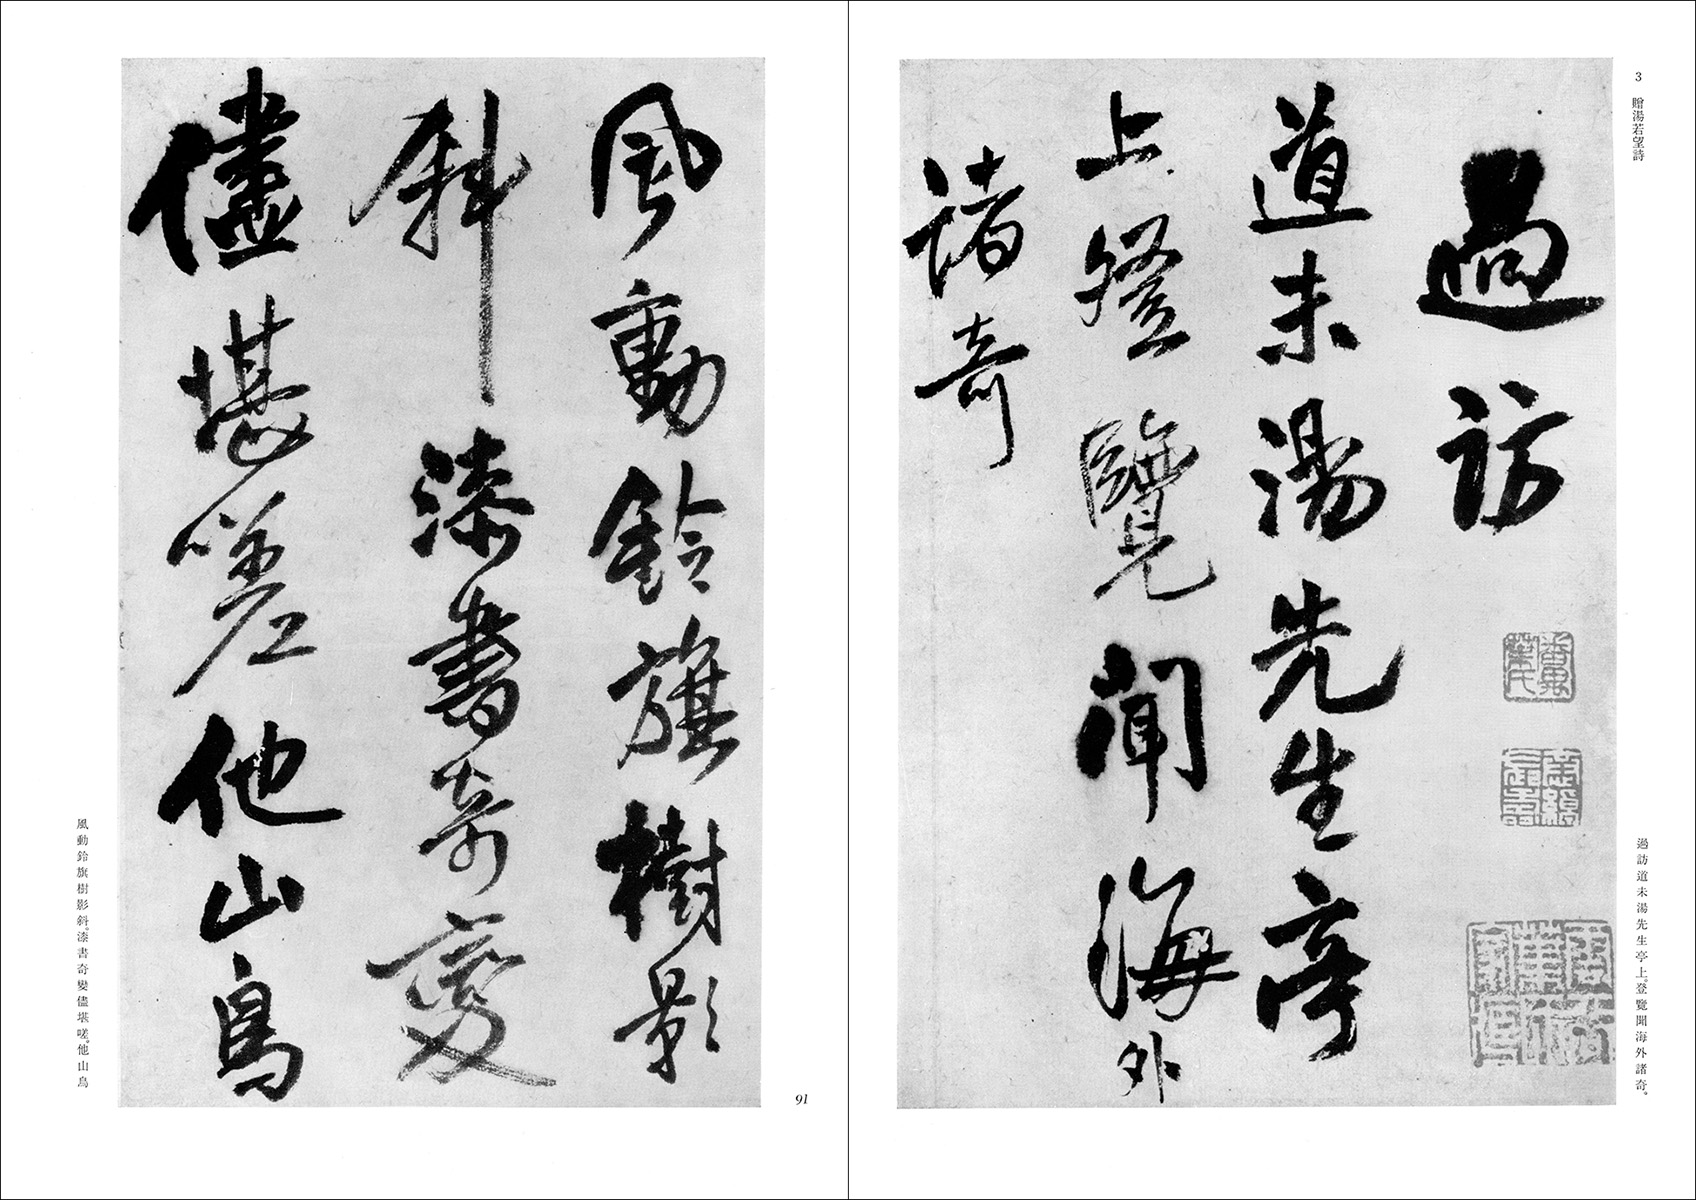 3 贈湯若望詩
過訪
道未湯先生亭
上登覽聞海外
諸奇
過訪道未湯先生亭上。登覽聞海外諸奇。
風動鈴旗樹影
斜漆書奇變
儘堪嗟他山鳥
風動鈴旗樹影斜。漆書奇變儘堪嗟。他山鳥
91